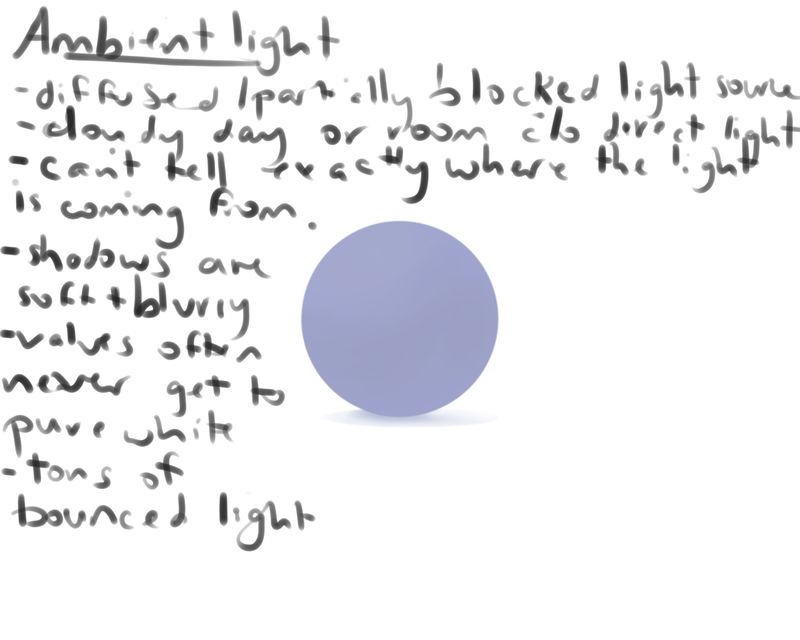 Ambient light
-diffused/partially blocked light source
-cloudy day or room c̄/o direct light
-can't tell exactly where the light
is coming from.
-shadows are
soft + blurry
-values often
never get to
pure white
-tons of
bounced light